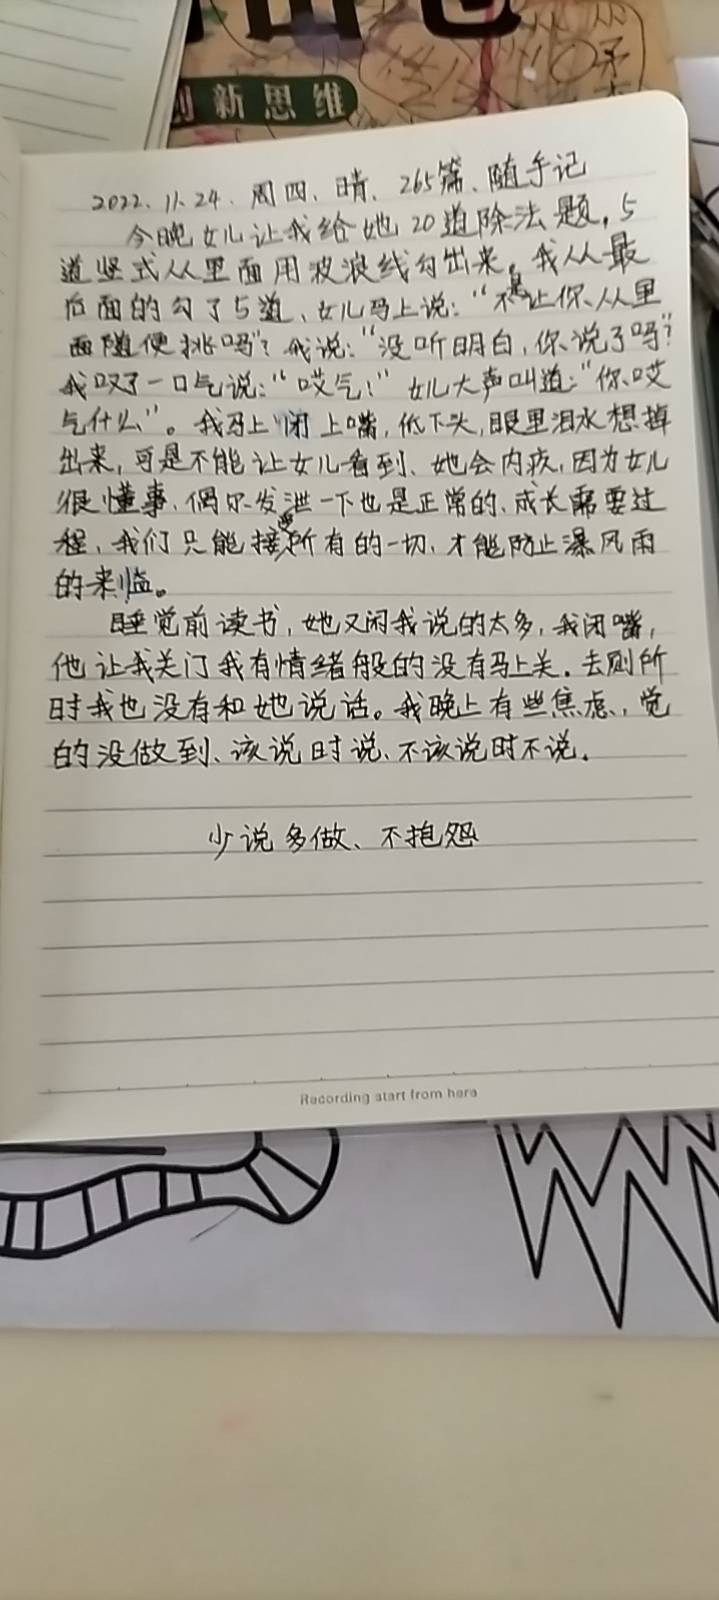 创新思维
2022.11.24.周四、晴、265篇、随手记
今晚女儿让我给她20道除法题,5
道竖式从里面用波浪线勾出来。我从最
后面的勾了5道、女儿马上说:“不是让你从里
面随便挑吗”?我说:“没听明白,你说了吗?
我叹了一口气说:“哎气!”女儿大声叫道:“你哎
气什么”。我马上闭上嘴,低下头,眼里泪水想掉
出来,可是不能让女儿看到、她会内疚,因为女儿
很懂事、偶尔发泄一下也是正常的、成长需要过
程、我们只能接受所有的一切、才能防止暴风雨
的来临。
睡觉前读书,她又闲我说的太多,我闭嘴,
他让我关门我有情绪般的没有马上关.去厕所
时我也没有和她说话。我晚上有些焦虑、,觉
的没做到、该说时说、不该说时不说.
少说多做、不抱怨
Recording start from here